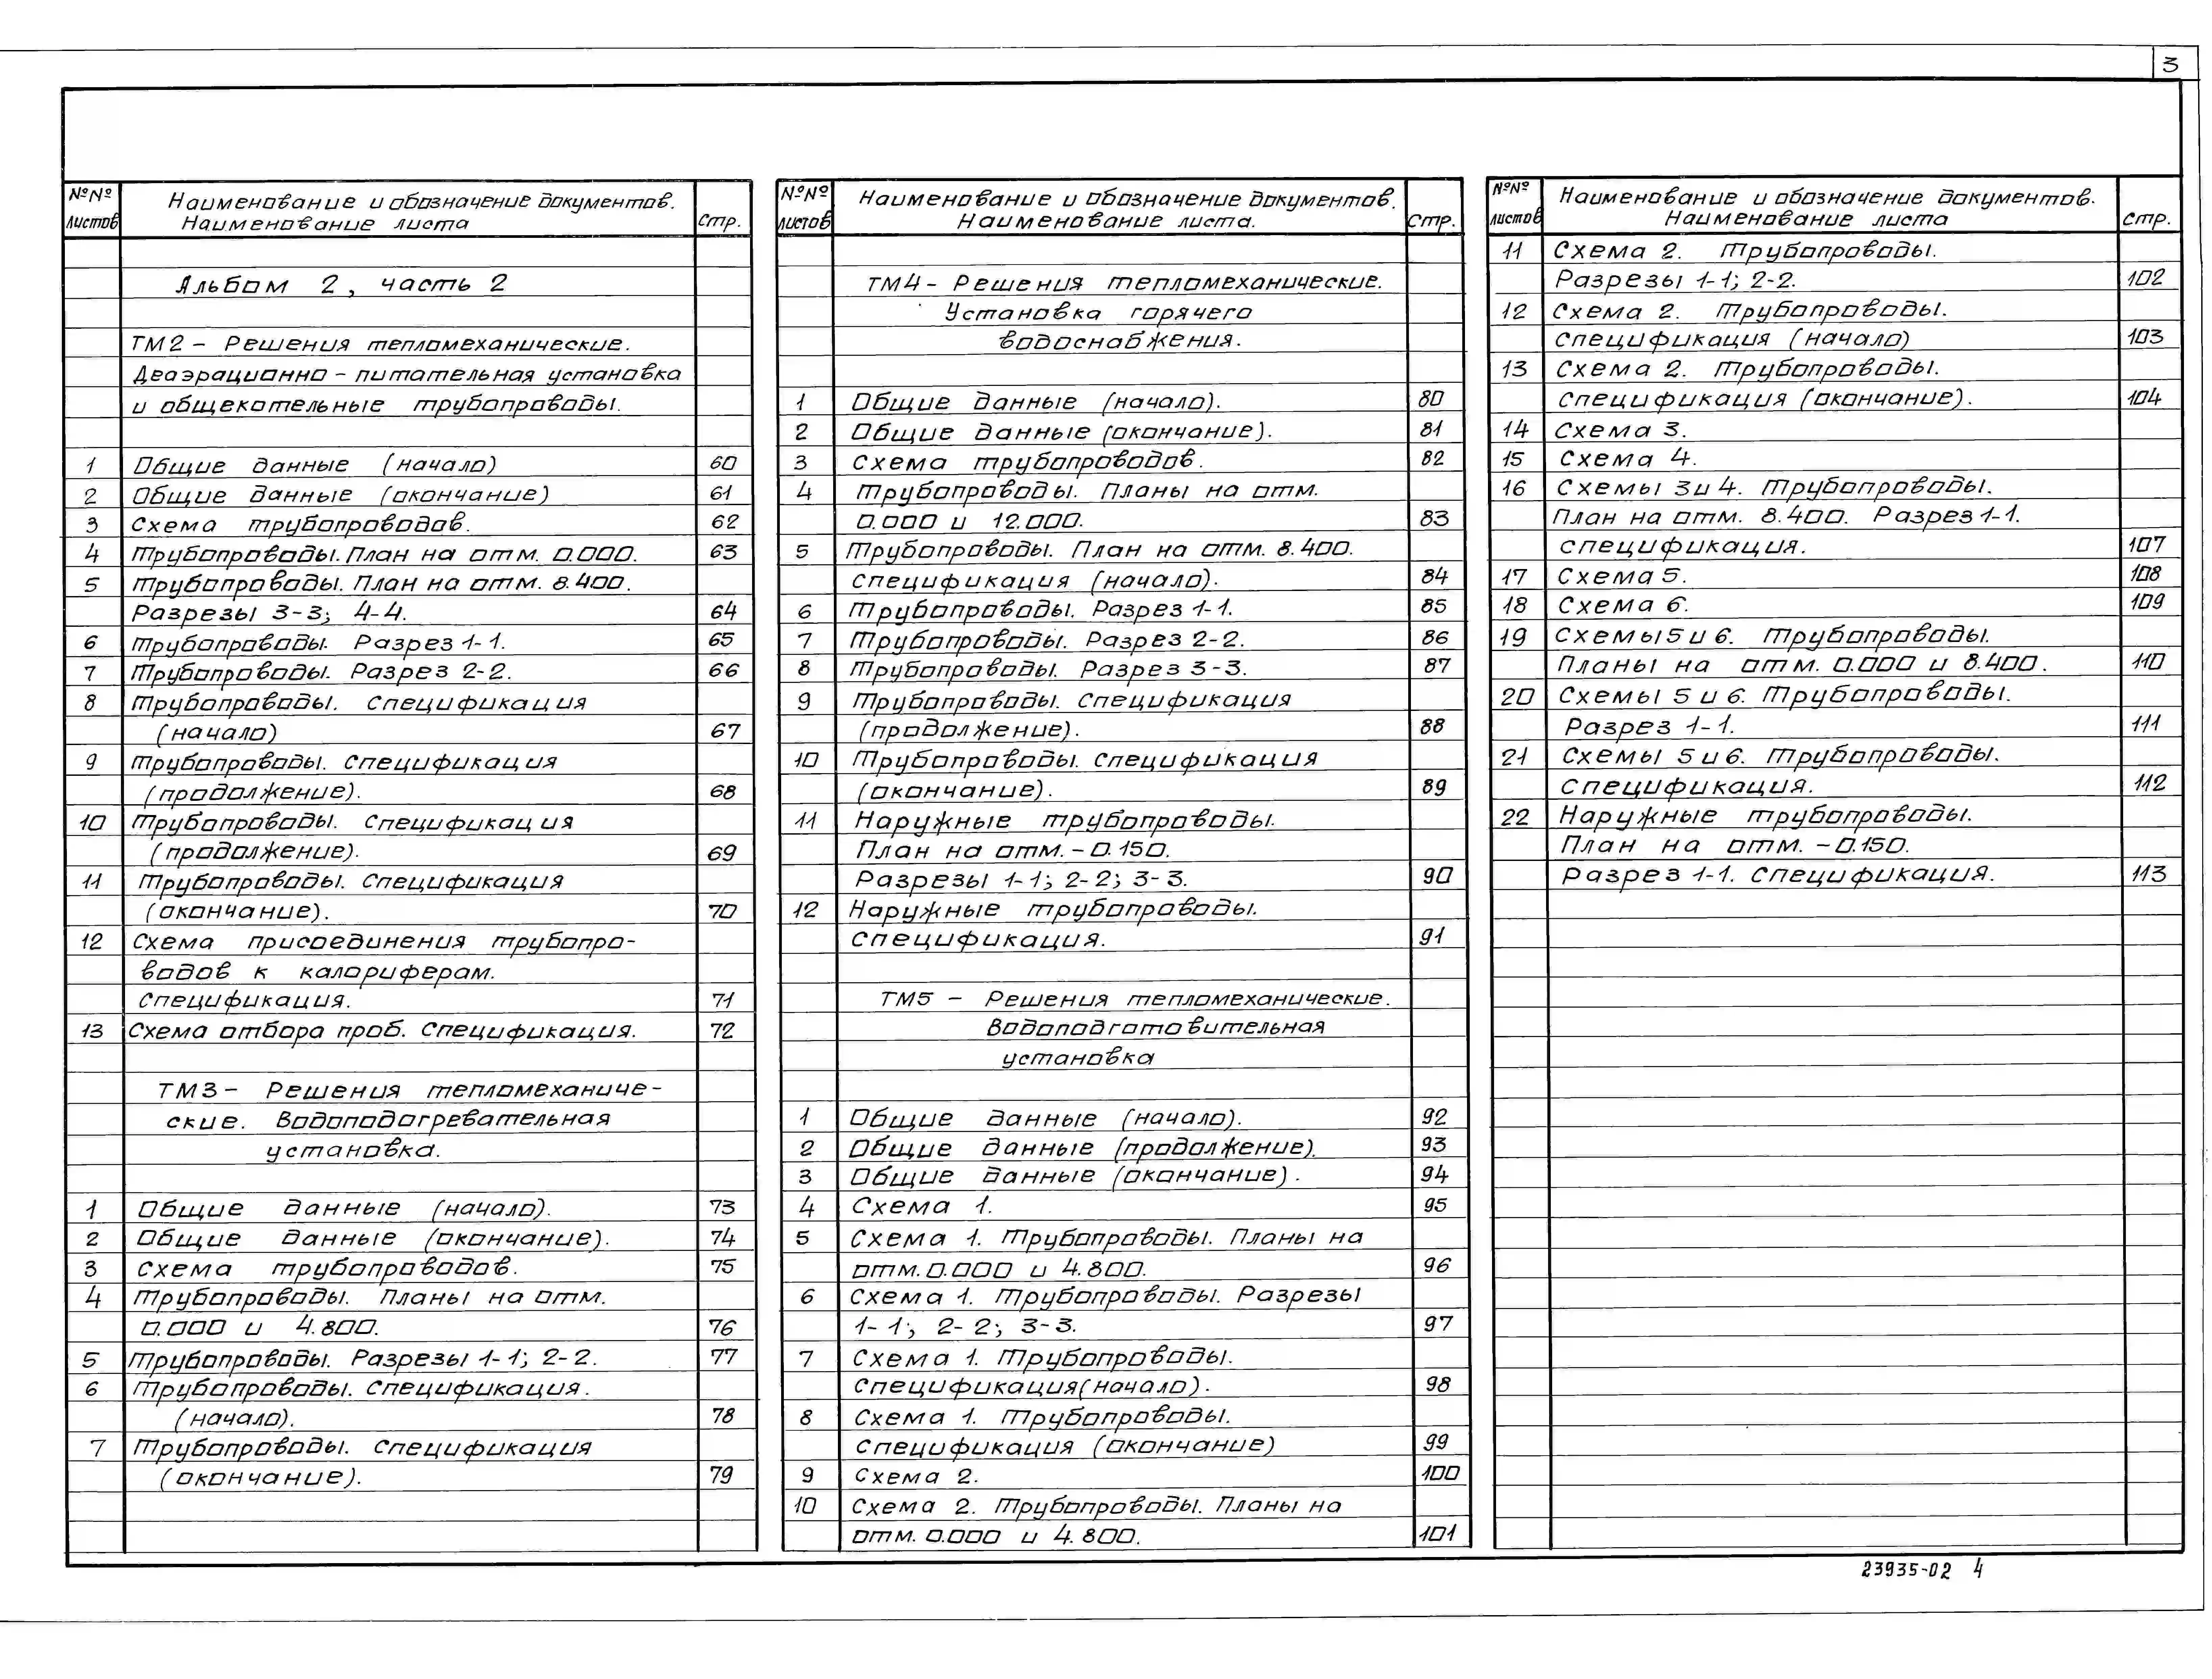 3
№№ листов
Наименование и обозначение документов.
Наименование листа
стр.
Альбом 2, часть 2
ТМ2 - Решения тепломеханические.
Деаэрационно-питательная установка
и общекотельные трубопроводы.
1 Общие данные (начало) 60
2 Общие данные (окончание) 61
3 Схема трубопроводов. 62
4 Трубопроводы. План на отм. 0.000. 63
5 Трубопроводы. План на отм. 8.400.
Разрезы 3-3; 4-4. 64
6 Трубопроводы. Разрез 1-1. 65
7 Трубопроводы. Разрез 2-2. 66
8 Трубопроводы. Спецификация
(начало) 67
9 Трубопроводы. Спецификация
(продолжение). 68
10 Трубопроводы. Спецификация
(продолжение). 69
11 Трубопроводы. Спецификация
(окончание). 70
12 Схема присоединения трубопро-
водов к калориферам.
Спецификация. 71
13 Схема отбора проб. Спецификация. 72
ТМ3- Решения тепломеханиче-
ские. Водоподогревательная
установка.
1 Общие данные (начало). 73
2 Общие данные (окончание). 74
3 Схема трубопроводов. 75
4 Трубопроводы. Планы на отм.
0.000 и 4.800. 76
5 Трубопроводы. Разрезы 1-1; 2-2. 77
6 Трубопроводы. Спецификация.
(начало). 78
7 Трубопроводы. Спецификация
(окончание). 79
№№ листов
Наименование и обозначение документов.
Наименование листа.
стр.
ТМ4- Решения тепломеханические.
Установка горячего
водоснабжения.
1 Общие данные (начало). 80
2 Общие данные (окончание). 81
3 Схема трубопроводов. 82
4 Трубопроводы. Планы на отм.
0.000 и 12.000. 83
5 Трубопроводы. План на отм. 8.400.
Спецификация (начало). 84
6 Трубопроводы. Разрез 1-1. 85
7 Трубопроводы. Разрез 2-2. 86
8 Трубопроводы. Разрез 3-3. 87
9 Трубопроводы. Спецификация
(продолжение). 88
10 Трубопроводы. Спецификация
(окончание). 89
11 Наружные трубопроводы.
План на отм. -0.150.
Разрезы 1-1; 2-2; 3-3. 90
12 Наружные трубопроводы.
Спецификация. 91
ТМ5 - Решения тепломеханические.
Водоподготовительная
установка
1 Общие данные (начало). 92
2 Общие данные (продолжение). 93
3 Общие данные (окончание). 94
4 Схема 1. 95
5 Схема 1. Трубопроводы. Планы на
отм. 0.000 и 4.800. 96
6 Схема 1. Трубопроводы. Разрезы
1-1; 2-2; 3-3. 97
7 Схема 1. Трубопроводы.
Спецификация(начало). 98
8 Схема 1. Трубопроводы.
Спецификация (окончание) 99
9 Схема 2. 100
10 Схема 2. Трубопроводы. Планы на
отм. 0.000 и 4.800. 101
№№ листов
Наименование и обозначение документов.
Наименование листа
стр.
11 Схема 2. Трубопроводы.
Разрезы 1-1; 2-2. 102
12 Схема 2. Трубопроводы.
Спецификация (начало) 103
13 Схема 2. Трубопроводы.
Спецификация (окончание). 104
14 Схема 3.
15 Схема 4.
16 Схемы 3 и 4. Трубопроводы.
План на отм. 8.400. Разрез 1-1.
Спецификация. 107
17 Схема 5. 108
18 Схема 6. 109
19 Схемы 5 и 6. Трубопроводы.
Планы на отм. 0.000 и 8.400. 110
20 Схемы 5 и 6. Трубопроводы.
Разрез 1-1. 111
21 Схемы 5 и 6. Трубопроводы.
Спецификация. 112
22 Наружные трубопроводы.
План на отм. -0.150.
Разрез 1-1. Спецификация. 113
23935-02 4